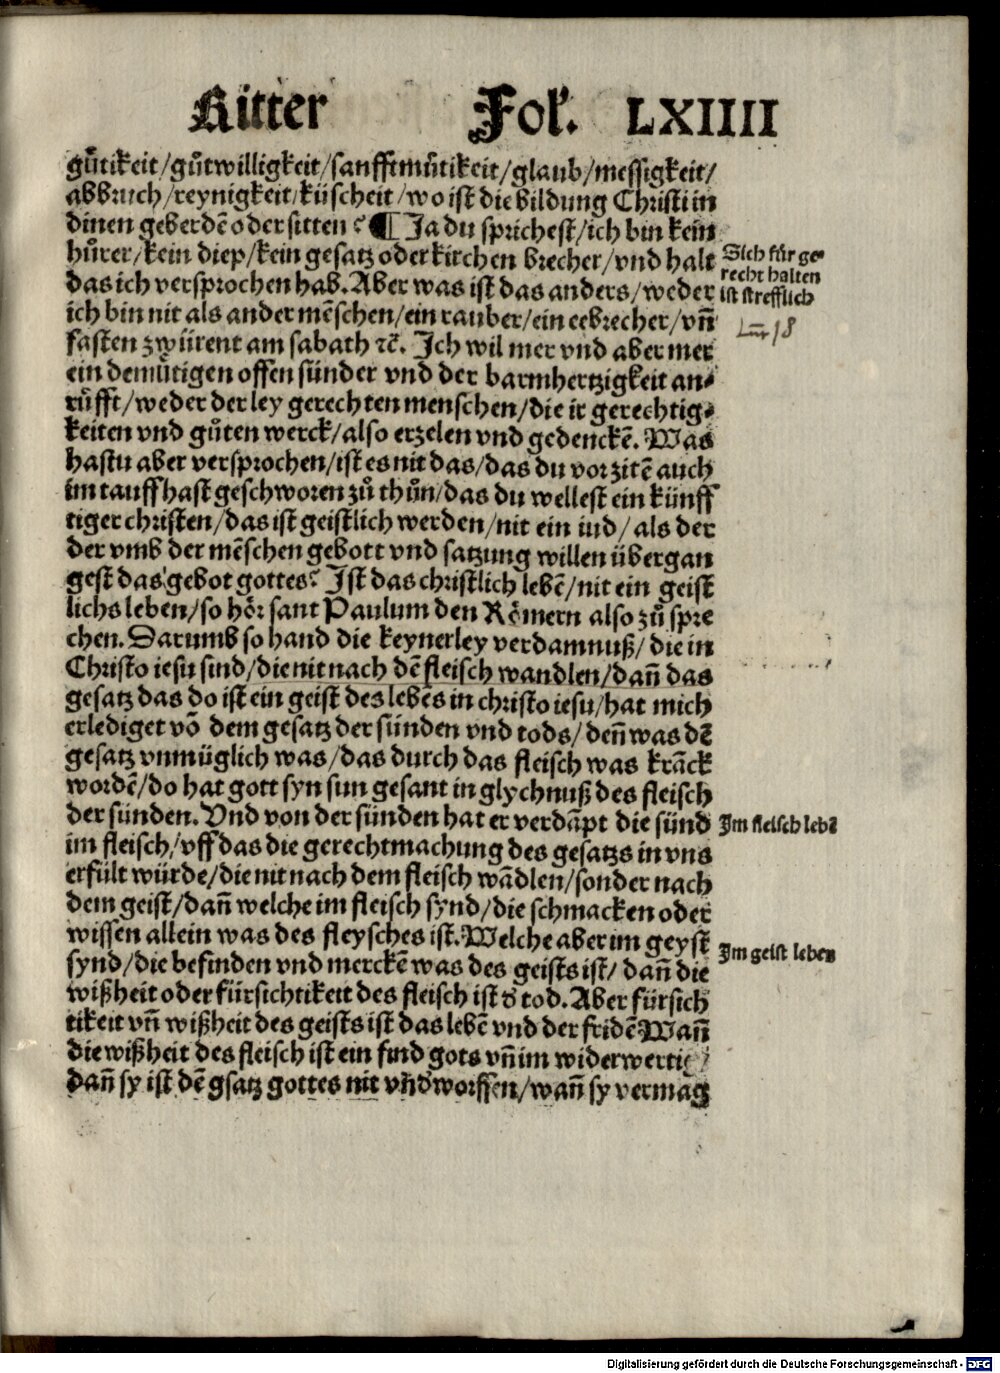 Ritter Fol. LXIIII
gůtikeit/gůtwilligkeit/sanfftmůtikeit/glaub/messigkeit/
abbruch/reynigkeit/küscheit/wo ist die bildung Christi in
dinen geberdē oder sitten? ¶ Ja du sprichest/ich bin kein
hůrer/kein diep/kein gesatz oder kirchen brecher/vnd halt
das ich versprochen hab. Aber was ist das anders/weder
ich bin nit als ander mēschen/ein rauber/ein eebrecher/vn̄
fasten zwürent am sabath ꝛc̄. Ich wil mer vnd aber mer
ein demütigen offen sünder vnd der barmhertzigkeit an⸗
růfft/weder der ley gerechten menschen/die ir gerechtig⸗
keiten vnd gůten werck/also erzelen vnd gedenckē. Was
hastu aber versprochen/ist es nit das/das du vor zitē auch
im tauff hast geschworen zů thůn/das du wellest ein künff
tiger christen/das ist geistlich werden/nit ein iud/als der
der vmb der mēschen gebott vnd satzung willen übergan
gest das gebot gottes? Ist das christlich lebē/nit ein geist
lichs leben/so hör sant Paulum den Römern also zů spre
chen. Darumb so hand die keynerley verdamnuß/die in
Christo iesu sind/die nit nach dē fleisch wandlen/dan̄ das
gesatz das do ist ein geist des lebēs in christo iesu/hat mich
erlediget vō dem gesatz der sünden vnd tods/den̄ was dē
gesatz vnmüglich was/das durch das fleisch was krāck
wordē/do hat gott syn sun gesant in glychnuß des fleisch
der sünden. Vnd von der sünden hat er verdāpt die sünd
im fleisch/vff das die gerechtmachung des gesatzs in vns
erfült würde/die nit nach dem fleisch wādlen/sonder nach
dem geist/dan̄ welche im fleisch synd/die schmacken oder
wissen allein was des fleysches ist. Welche aber im geyst
synd/die befinden vnd merckē was des geists ist/dan̄ die
wißheit oder fürsichtikeit des fleisch ist d̄ tod. Aber fürsich
tikeit vn̄ wißheit des geists ist das lebē vnd der fridē Wan̄
die wißheit des fleisch ist ein find gots vn̄ im widerwertig/
dan̄ sy ist dē gsatz gottes nit vnd̄worffen/wan̄ sy vermag
Sich für ge⸗
recht halten
ist strefflich
18
Im fleisch lebē
Im geist leben
Digitalisierung gefördert durch die Deutsche Forschungsgemeinschaft - DFG